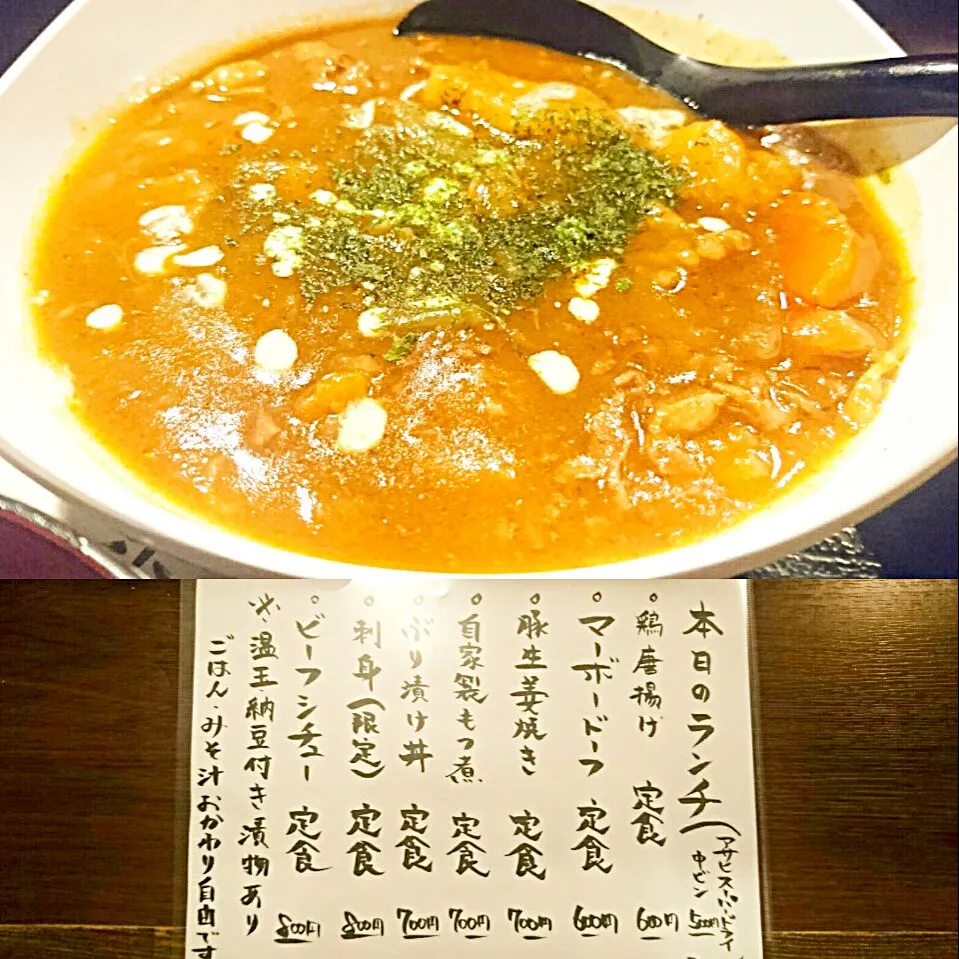 本日のランチ(アサヒスーパードライ
中ビン 500円
。鶏唐揚げ 定食 600円
。マーボードーフ 定食 600円
。豚生姜焼き 定食 700円
。自家製もつ煮 定食 700円
。ぶり漬け丼 定食 700円
。刺身(限定) 定食 800円
。ビーフシチュー 定食 800円
※温玉納豆付き漬物あり
ごはん・みそ汁おかわり自由です